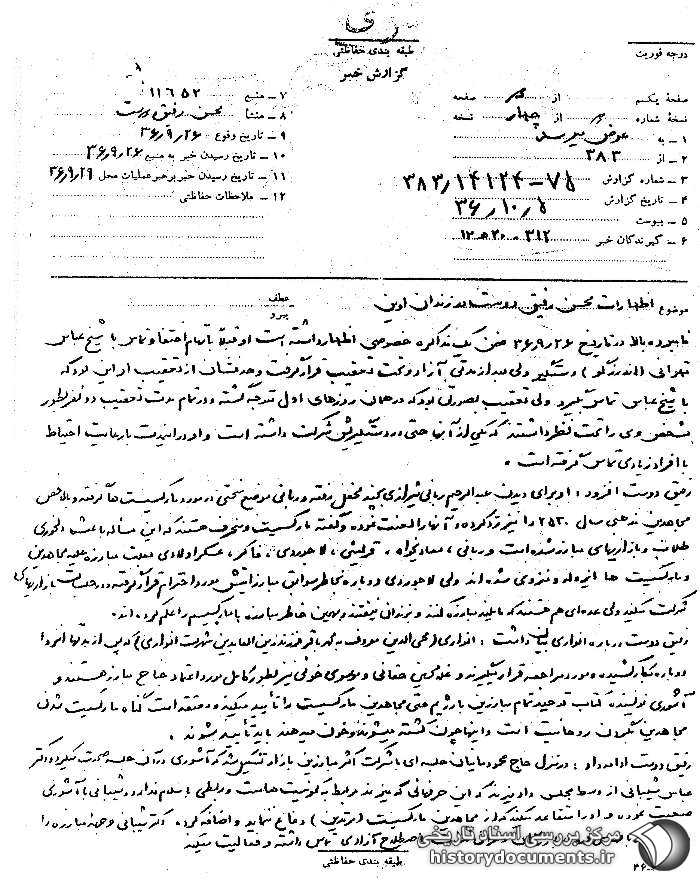 ری
طبقه بندی حفاظتی
گزارش خبر
درجه فوریت
صفحه یکم از صفحه
نسخه شماره از چهار نسخه
۱ – به عرض میرسد
۲ – از ۳۸۳
۳ – شماره گزارش ۳۸۳/۱۴۱۲۴-۷۵
۴ – تاریخ گزارش ۳۶/۱۰/۵
۵ – پیوست
۶ – گیرندگان خبر ۳۱۲ - ۲۰ ه ۱۲
۷ – منبع ۱۱۶۵۲
۸ – منشأ محسن رفیق دوست
۹ – تاریخ وقوع ۳۶/۹/۲۶
۱۰ – تاریخ رسیدن خبر به منبع ۳۶/۹/۲۶
۱۱ – تاریخ رسیدن خبر برهبر عملیات محل ۳۶/۹/۲۹
۱۲ – ملاحظات حفاظتی
موضوع اظهارات محسن رفیق دوست در زندان اوین
عطف
پیرو
نامبرده بالا در تاریخ ۳۶/۹/۲۶ ضمن یک مذاکره خصوصی اظهار داشته است او قبلاً باتهام اختفا و تماس با شیخ عباس
تهرانی (اندرزگو) دستگیر ولی بعد از مدتی آزاد و تحت تعقیب قرار گرفت و هدفشان از تعقیب او این بود که
با شیخ عباس تماس بگیرد ولی تعقیب بصورتی بود که در همان روزهای اول متوجه گشته و در تمام مدت تعقیب دو نفر بطور
مشخص وی را تحت نظر داشتند که یکی از آن‌ها حتی در دستگیریش شرکت داشته است و او در این مدت با رعایت احتیاط
با افراد زیادی تماس گرفته است .
رفیق دوست افزود : او برای دیدن عبدالرحیم ربانی شیرازی بچند محل رفته و ربانی موضع سختی در مورد مارکسیست‌ها گرفته و بالاخص
مجاهدین مذهبی سال ۲۵۳۰ را نیز رد کرده و آنها را لعنت نموده و گفته مارکسیست و منحرف هستند که این مسأله باعث دلخوری
طلاب و بازاریهای مبارز شده است و ربانی ، معادیخواه ، قریشی ، لاجوردی ، فاکر ، عسکراولادی بعلت مبارزه علیه مجاهدین
و مارکسیست ها ایزوله و منزوی شده اند ولی لاجوردی دوباره بخاطر سوابق مبارزاتیش مورد احترام قرار گرفته و در جلسات بازاریها
شرکت میکند ولی عده‌ای هم هستند که مایلند مبارزه کنند و زندان نیفتند و بهمین خاطر مبارزه با مارکسیسم را علم کرده اند.
رفیق دوست درباره انواری بیان داشت : انواری (محی الدین معروف به محمدباقر فرزند زین العابدین شهرت انواری) پس از مدتها انزوا
دوباره بکار کشیده و مورد مراجعه قرار میگیرند و غلامحسین حقانی و موسوی خوئی نیز بطور کامل مورد اعتماد جناح مبارز هستند و
آشوری نویسنده کتاب توحید تمام مبارزین با رژیم حتی مجاهدین مارکسیست را تأیید میکند و معتقد است گناه مارکسیست شدن
مجاهدین بگردن روحانیت است و اینها چون کشته میشوند و خون میدهند باید تأیید شوند .
رفیق دوست ادامه داد : در منزل حاج محمود مانیان جلسه‌ای با شرکت اکثر مبارزین بازار تشکیل شد که آشوری در آن جلسه صحبت میکرد و دکتر
عباس شیبانی از وسط مجلس داد میزند که این حرفهائی که میزند مربوط به کمونیست هاست و ربطی به اسلام ندارد و شیبانی با آشوری
صحبت نموده و او را متقاعد میکند که از مجاهدین مارکسیست (مرتدین) دفاع ننماید و اضافه کرد ، دکتر شیبانی وجهه مبارزه را
اصطلاح آزادی تماس داشته و فعالیت میکند
طبقه بندی حفاظتی
مرکز بررسی اسناد تاریخی
historydocuments.ir